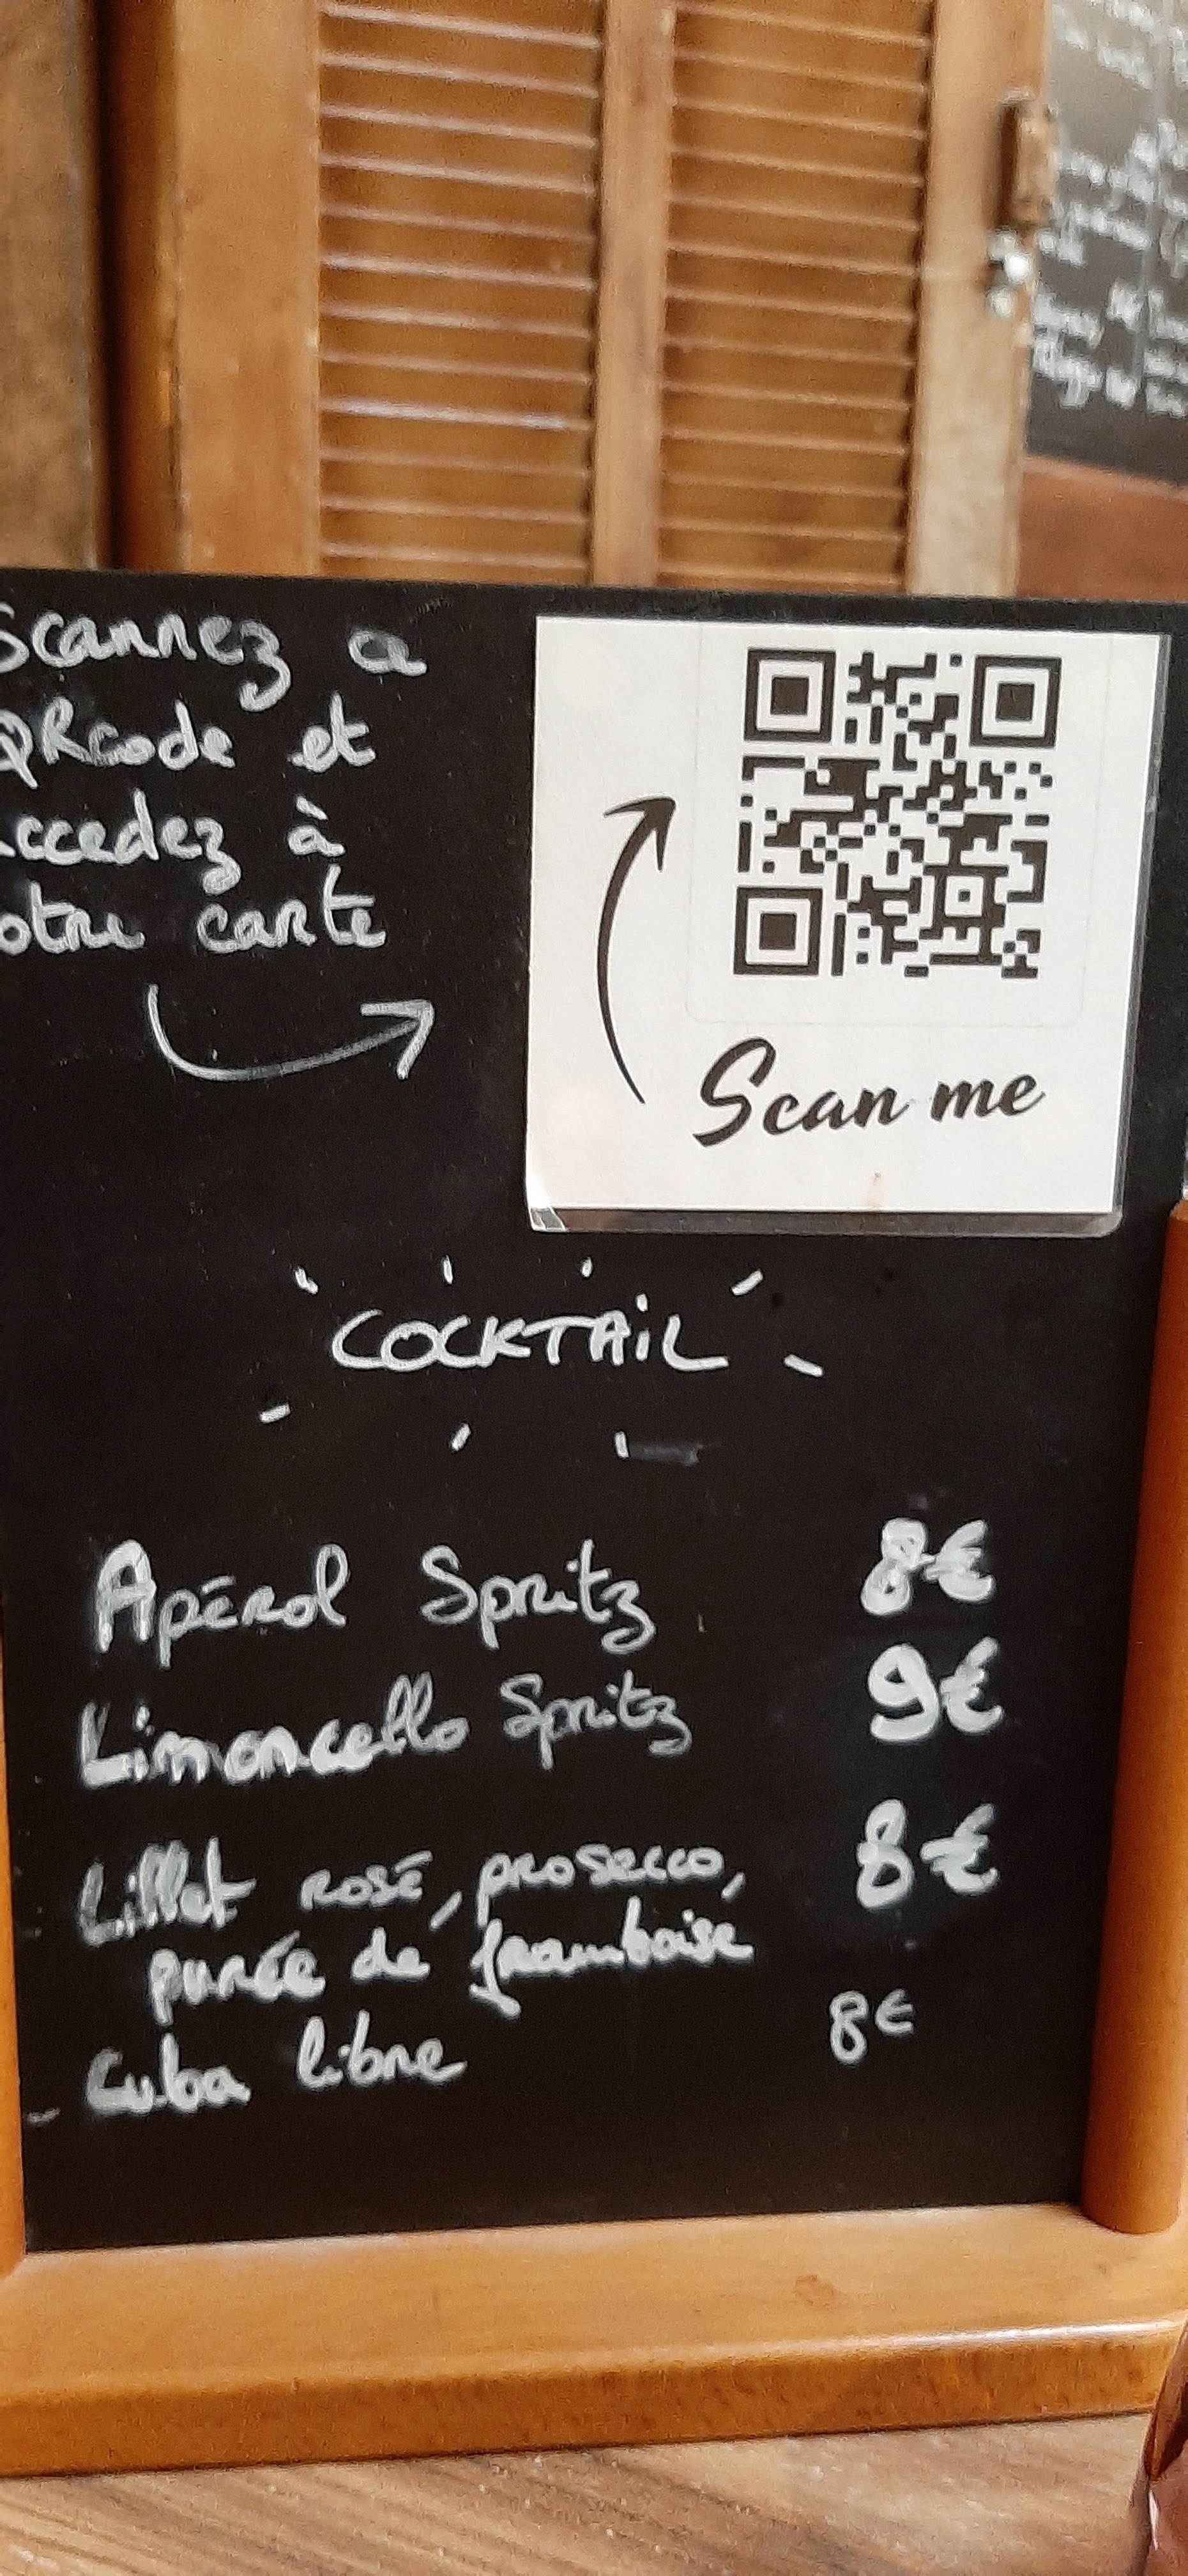 Scannez ce
QRcode et
accedez à
otre carte
Scan me
COCKTAIL
Apérol Spritz 8€
Limoncello Spritz 9€
Lillet rosé, prosecco, 8€
purée de framboise
Cuba libre 8€